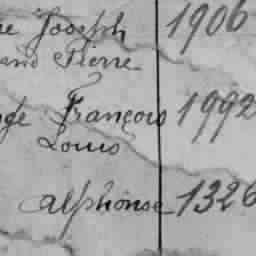 Joseph 1906
Pierre
François 1992
Louis
Alphonse 1326